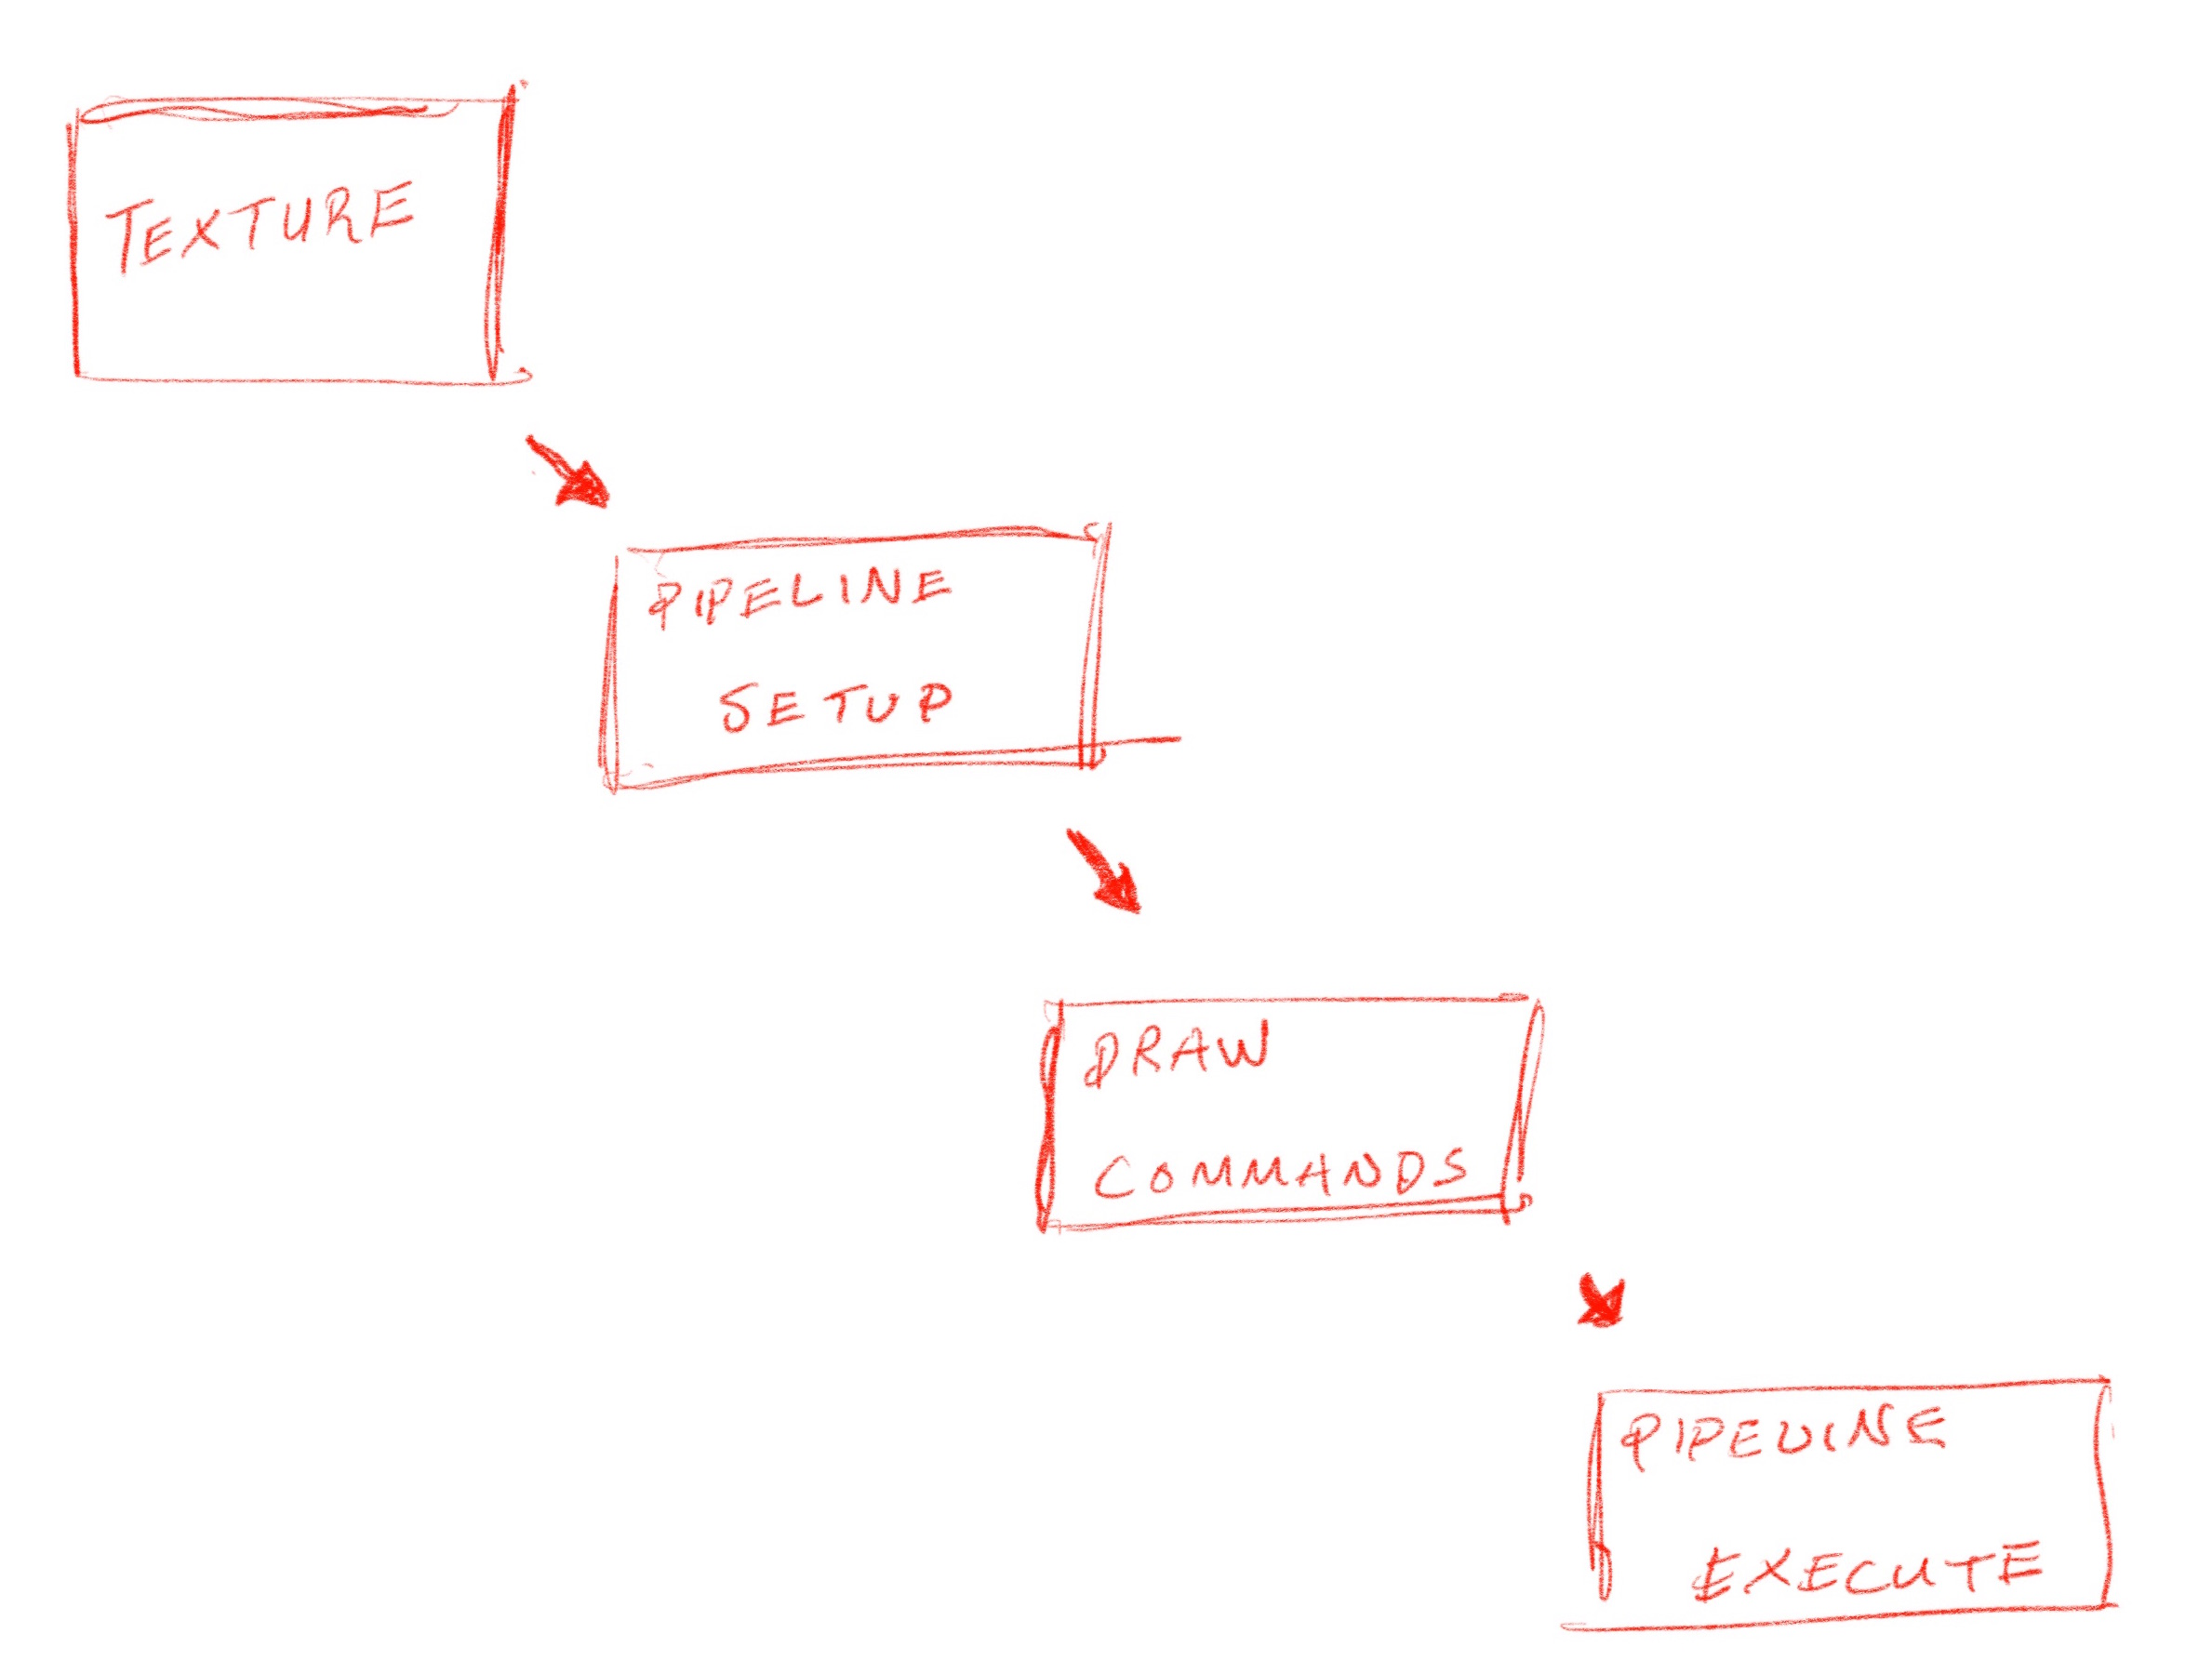 TEXTURE
PIPELINE
SETUP
DRAW
COMMANDS
PIPELINE
EXECUTE